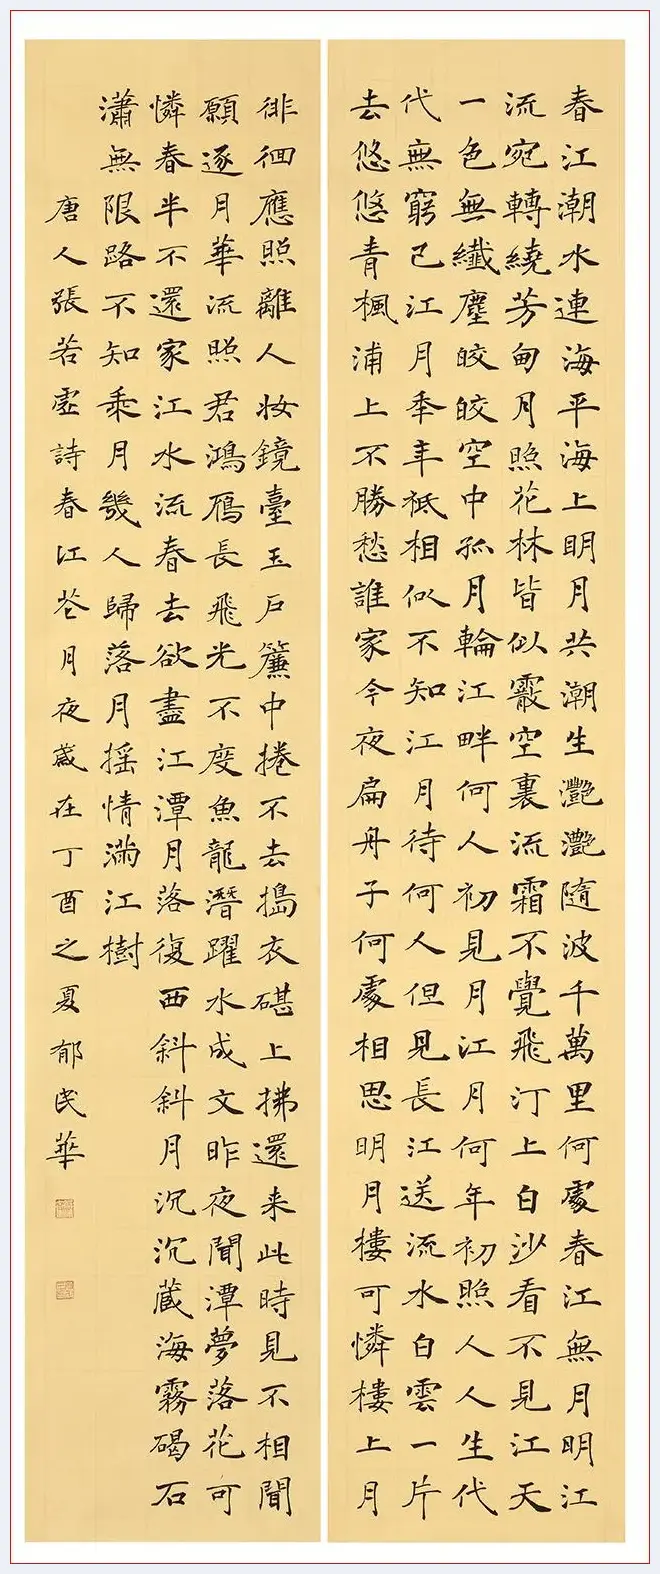 春江潮水連海平海上明月共潮生灔灔隨波千萬里何處春江無月明江
流宛轉繞芳甸月照花林皆似霰空裏流霜不覺飛汀上白沙看不見江天
一色無纖塵皎皎空中孤月輪江畔何人初見月江月何年初照人人生代
代無窮已江月年年祇相似不知江月待何人但見長江送流水白雲一片
去悠悠青楓浦上不勝愁誰家今夜扁舟子何處相思明月樓可憐樓上月
徘徊應照離人妝鏡臺玉戶簾中捲不去搗衣碪上拂還来此時見不相聞
願逐月華流照君鴻雁長飛光不度魚龍潛躍水成文昨夜聞潭夢落花可
憐春半不還家江水流春去欲盡江潭月落復西斜斜月沉沉藏海霧碣石
瀟無限路不知乘月幾人歸落月搖情滿江樹
唐人張若虛詩春江花月夜歲在丁酉之夏郁民華